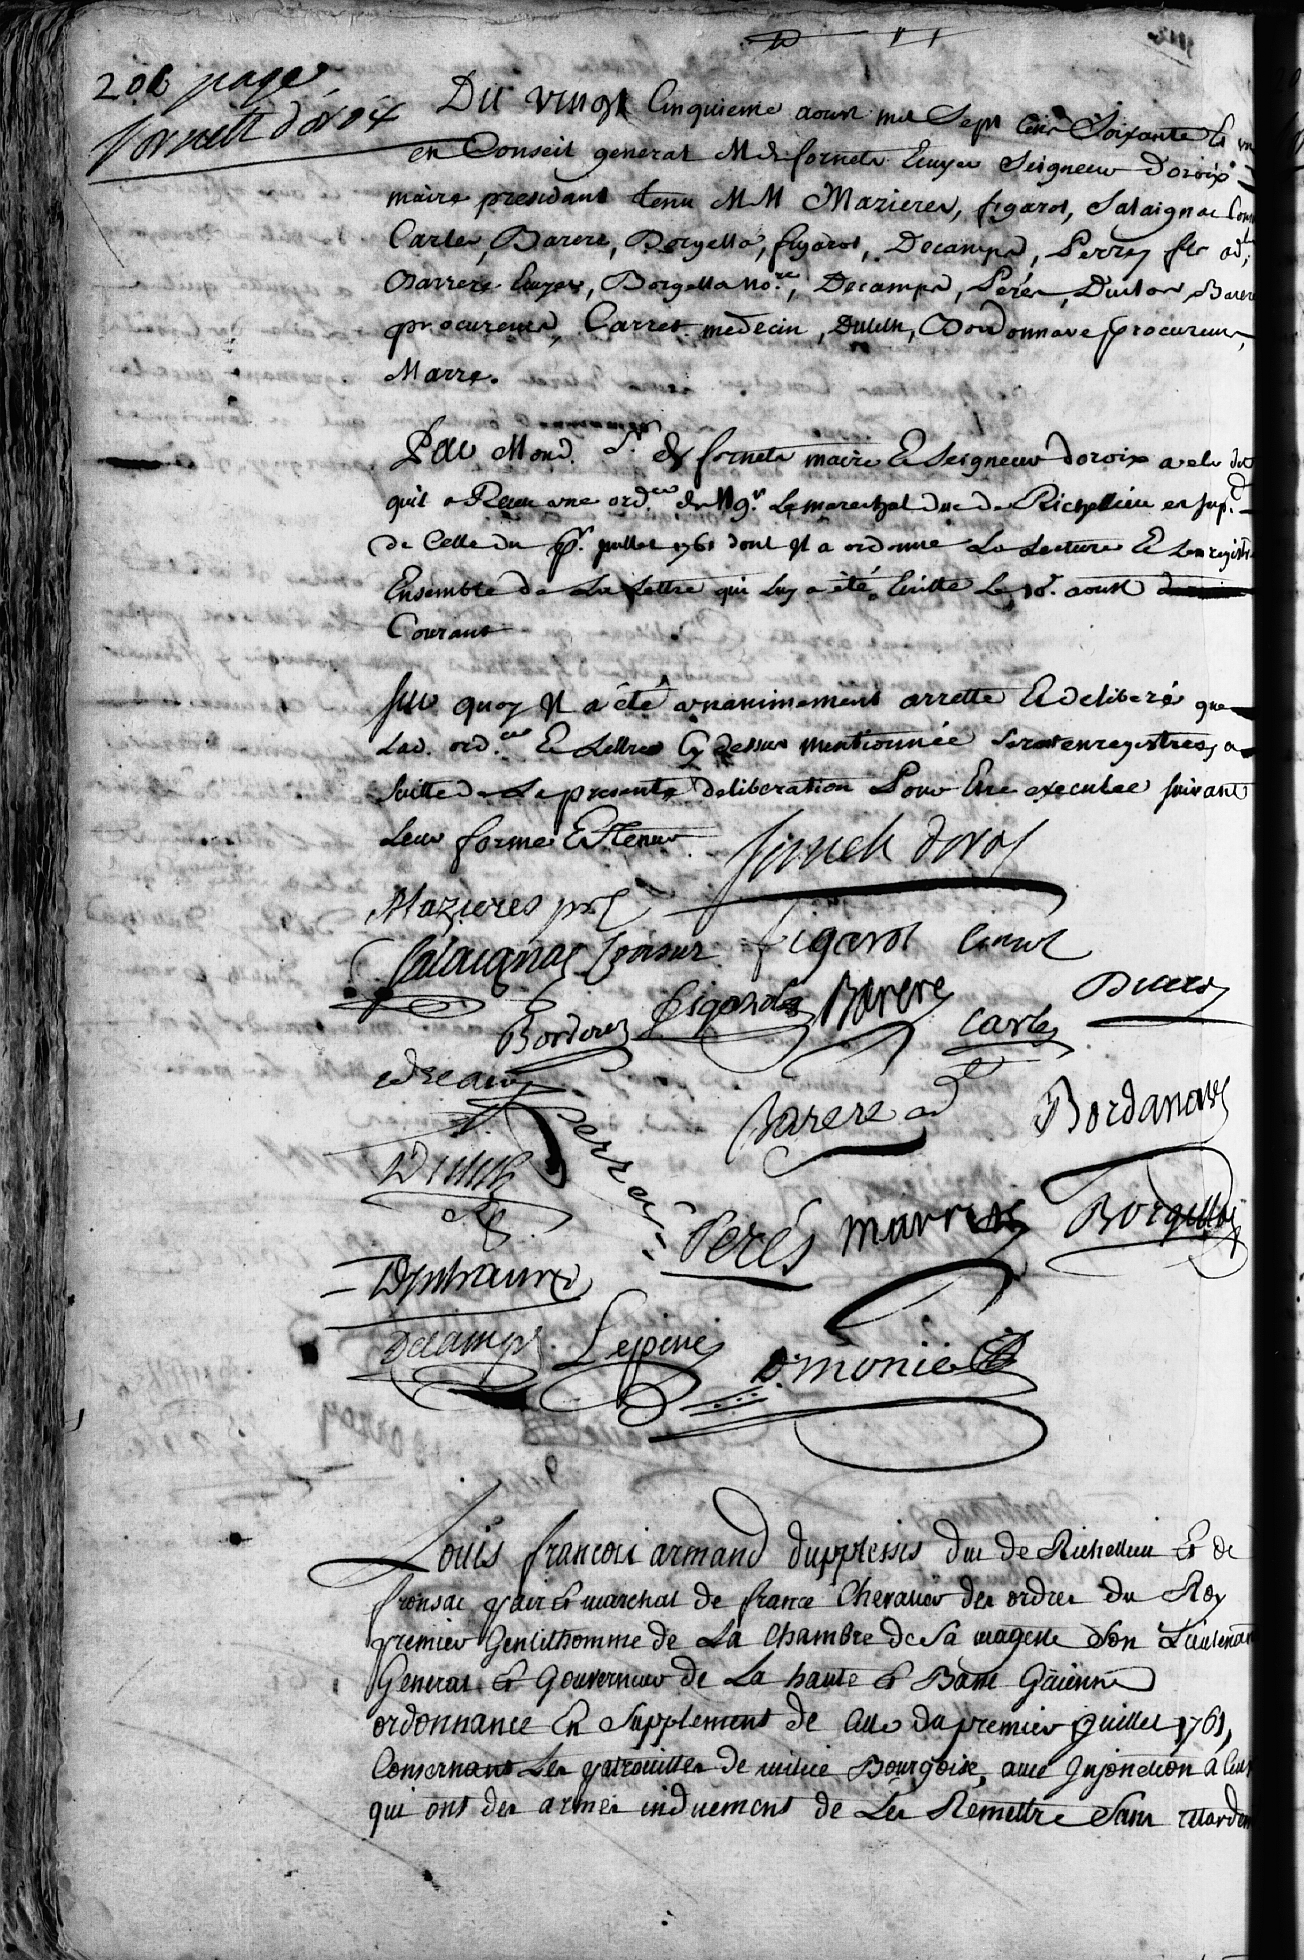 206 page
fornetz d'oroix
Du vingt Cinquieme aoust mil Sept Cens Soixante &
en Conseil general M de fornetz Ecuyer Seigneur Doroix
maire presidant tenu M M Mazieres, figarol, Salaignac
Carles, Barere, Borgella, figarol, Decamps, Perrey
Barrere Ecuyer, Borgella no.re, Decamps, Peres, Duclos, Barere
procureurs, Carrer medecin, Dutilh, Bordonnave procureur,
Marre.
Par Mond. Sr. de fornetz maire & Seigneur doroix a ete dit
quil a Receu une ord.ce de Mgr. Le marechal duc de Richellieu en sup.t
de Celle du pr. juillet 1761 dont Il a ordonné La Lecture & Lenregistr
Ensemble de La Lettre qui Luy a été Ecritte Le 18. aoust
Courant
Sur quoy Il a été unanimement arretté & deliberé que
Lad. ord.ce & Lettre Cy dessus mentionnée Seront enregistres, a
Suitte de La presente deliberation Pour Etre executee suivant
Leur forme & Teneur
fornetz doroix
Mazieres
Salaignac figarol
Bordères figarol Barere Carles
Decamps Perrei Barere ad Bordanave
Dutilh
Perés marre Borgella
Decamps Lespine
Dmonier
Louis francois armand dupplessis duc de Richellieu & de
fronsac pair & marechal de france Chevalier des ordres du Roy
premier Gentilhomme de La Chambre de Sa magesté Son Lieutenan
General & Gouverneur de La haute & Basse Guienne
ordonnance En Supplement de Celle du premier Juillet 1761,
Consernant Les patrouilles de milice Bourgoise, avec Injonction à Ceux
qui ont des armes induement de Les Remettre Sans retardem